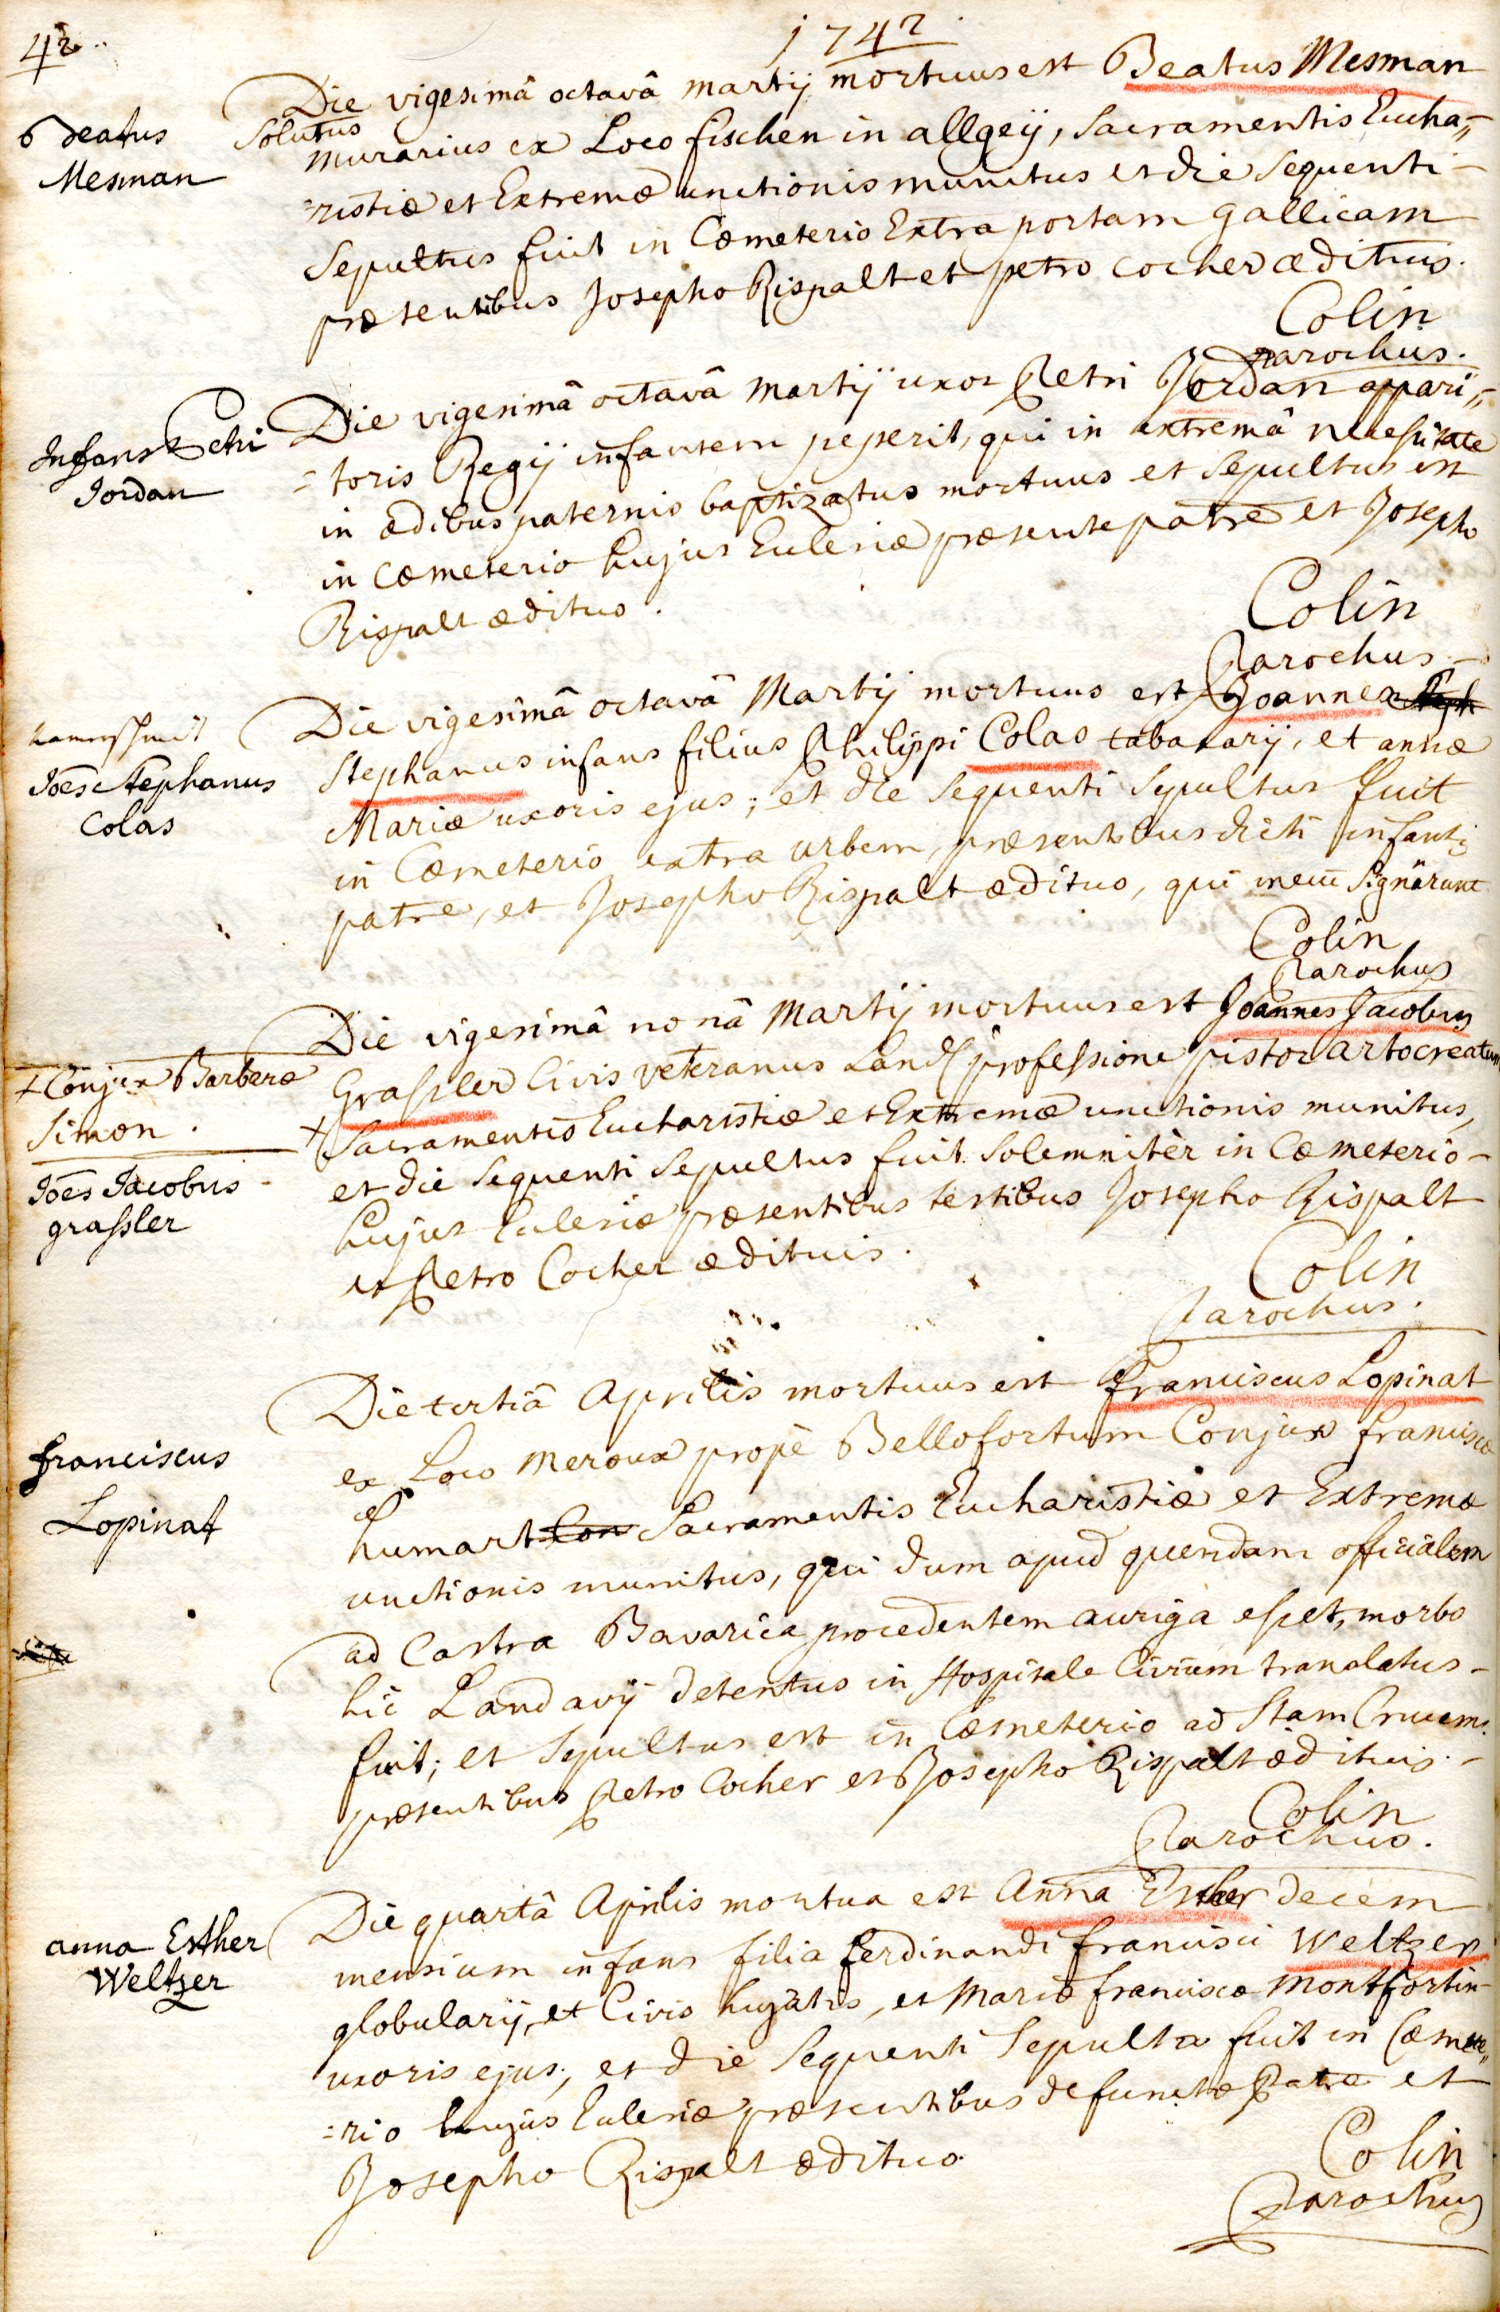 42.
1742.
Beatus
Mesman
Die vigesimâ octavâ martij mortuus est Beatus Mesman
Solutus
murarius ex Loco fischen in allgeij, Sacramentis Eucha=
=ristiæ et Extremæ unctionis munitus et die Sequenti
Sepultus fuit in Cœmeterio Extra portam gallicam
præsentibus Josepho Rispalt et petro cocher ædituis.
Colin
parochus.
Infans Petri
Jordan
Die vigesimâ octavâ martij uxor Petri Jordan appari=
=toris Regij infantem peperit, qui in extremâ necessitate
in ædibus paternis baptizatus mortuus et Sepultus est
in Cœmeterio hujus Eclesiæ præsente patre et Josepho
Rispalt ædituo.
Colin
Parochus
Joes Stephanus
Colas
Die vigesimâ octavâ Martij mortuus est Joannes
Stephanus infans filius Philippi Colas tabacarij, et annæ
Mariæ uxoris ejus; et die Sequenti Sepultus fuit
in Cœmeterio extra urbem, præsentibus dicti infantis
patre, et Josepho Rispalt ædituo, qui mecū Signârunt
Colin
Parochus
+ Conjux Barbaræ
Simon.
Joes Jacobus
grassler
Die vigesimâ nonâ Martij mortuus est Joannes Jacobus
Grassler Civis veteranus Land. professione pistor artocreatum
+ Sacramentis Eucharistiæ et Extremæ unctionis munitus,
et die Sequenti Sepultus fuit Solemnitèr in Cœmeterio
hujus Eclesiæ præsentibus testibus Josepho Rispalt
et Petro Cocher ædituis.
Colin
Parochus.
franciscus
Lopinat
Die tertiâ Aprilis mortuus est franciscus Lopinat
ex Loco meroux propè Bellofortum Conjux franciscæ
humart Con Sacramentis Eucharistiæ et Extremæ
unctionis munitus, qui dum apud quendam officialem
ad Castra Bavarica procedentem auriga esset, morbo
hic Landavij detentus in Hospitale Civium translatus
fuit; et Sepultus est in Cœmeterio ad Stam Crucem
præsentibus Petro Cocher et Josepho Rispalt ædituis.
Colin
Parochus.
anna Esther
Weltzer
Die quartâ Aprilis mortua est Anna Esther decem
mensium infans filia ferdinandi francisci Weltzer
globularij, et Civis hujatis, et Mariæ franciscæ Montfortin
uxoris ejus; et die Sequenti Sepulta fuit in Cœmete=
=rio hujus Eclesiæ præsentibus defunctæ Patre et
Josepho Rispalt ædituo
Colin
Parochus